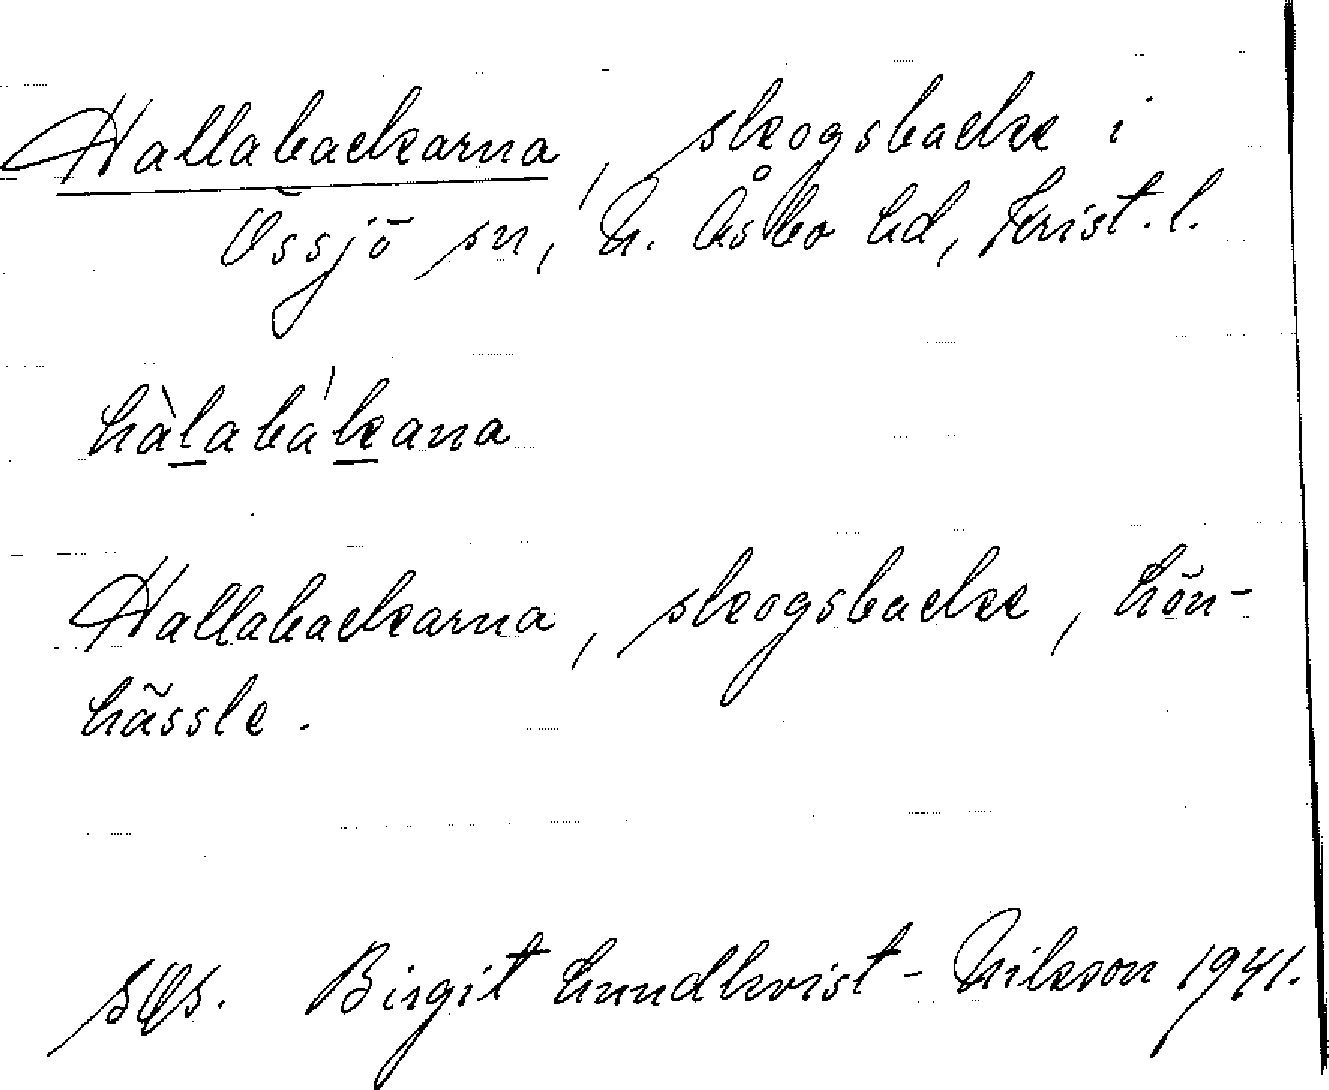 Hallabackarna, skogsbacke i
Össjö sn, N. Åsbo hd, Krist. l.
hàlabákana
Hallabackarna, skogsbacke, Lön-
hässle.
Birgit Lundkvist-Nilsson 1941.